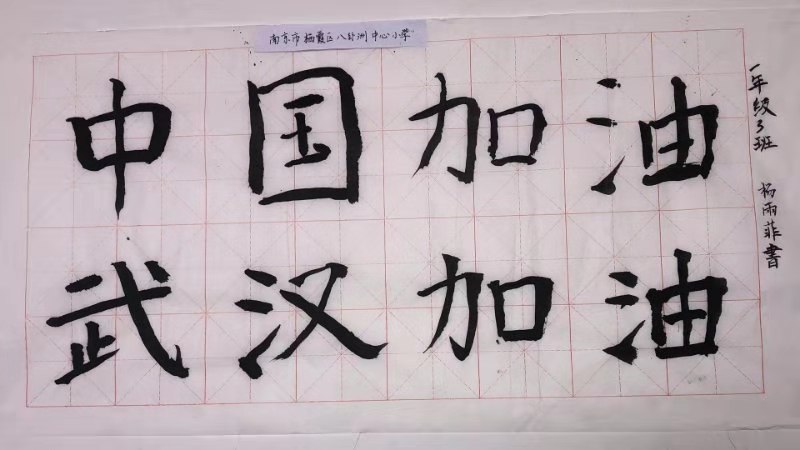 南京市栖霞区八卦洲中心小学
中国加油
武汉加油
一年级3班 杨雨菲書